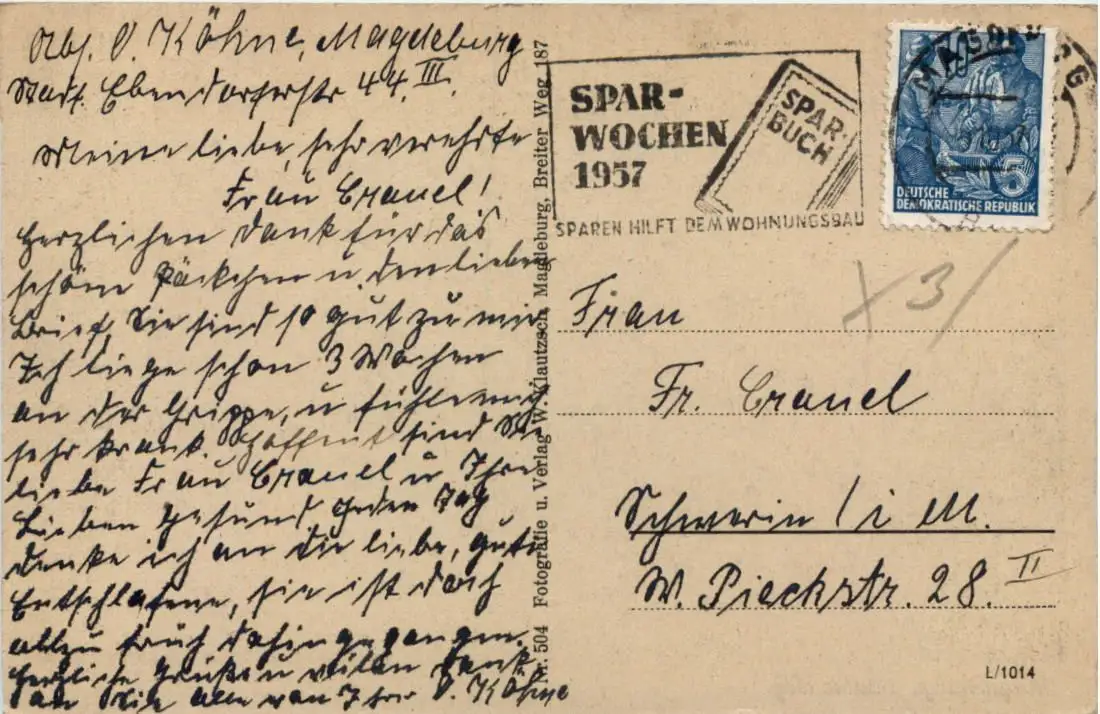 Abs. O. Köhne, Magdeburg
Stadtf. Ebendorferstr 44. III.
Meine liebe, sehr verehrte
Frau Cranel!
Herzlichen Dank für das
schöne Päckchen u. den lieben
Brief, Sie sind so gut zu mir
Ich liege schon 3 Wochen
an der Grippe, u fühle mich
sehr krank. Hoffent. sind Sie
liebe Frau Cranel u Ihre
Lieben gesund Jeden Tag
denke ich an die liebe, gute
Entschlafene, sie ist doch
allzu früh dahingegangen.
Herzliche Grüße u vielen Dank
an Sie alle von Ihrer O. Köhne
Nr. 504 Fotografie u. Verlag W. Klautzsch, Magdeburg, Breiter Weg 187
SPAR-
WOCHEN
1957
SPAR-
BUCH
SPAREN HILFT DEM WOHNUNGSBAU
MAGDEBURG
DEUTSCHE
DEMOKRATISCHE REPUBLIK
5
X 3/
Frau
Fr. Cranel
Schwerin / i M.
W. Pieckstr. 28. II
L/1014